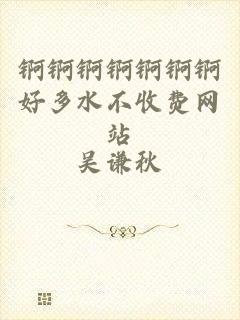 锕锕锕锕锕锕锕
好多水不收费网
站
吴谦秋